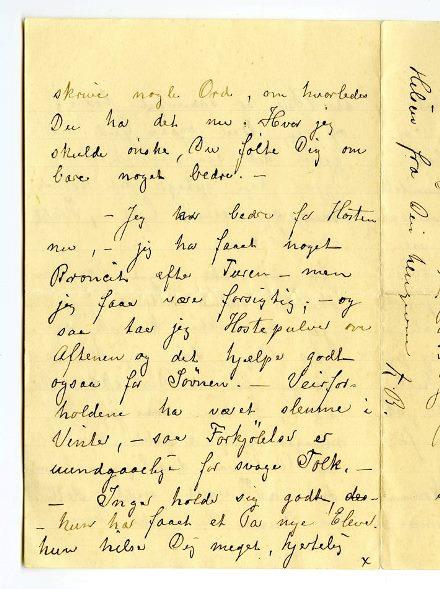 skrive nogle Ord, om hvorledes
Du ha det nu. Hvor jeg
skulde ønske, Du følte Dig om
bare noget bedre. –
– Jeg har bedre for Hosten
nu, – jeg ha faaet noget
Broncit efte Turen – men
jeg faae være forsigtig, – og
saa taa jeg Hostepulver om
Aftenen og det hjælpe godt
ogsaa for Søvnen. – Veirfor-
holdene ha været slemme i
Vinter, – saa Forkjölelser er
uundgaaelige for svage Folk. –
– Inga holde sig godt,
– hun har faaet et Pa nye Eleve.
hun hilse Dig meget, hjertelig
x
Hilsen fra Din hengivne
B.